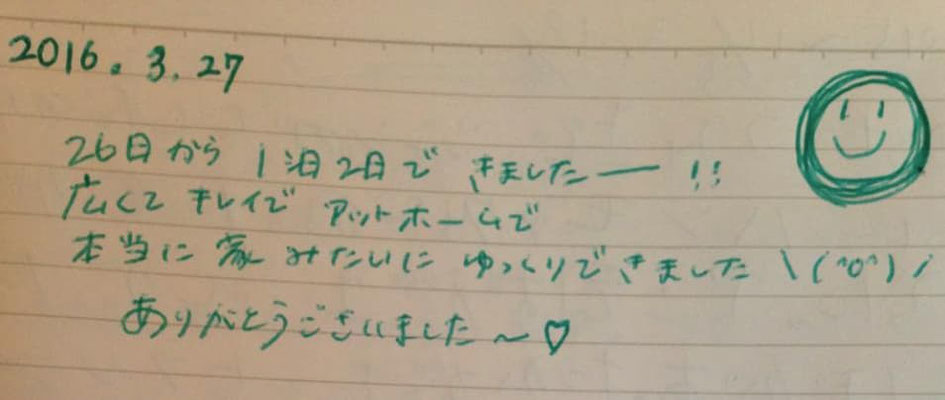 2016. 3. 27
26日から 1泊2日で きましたー!!
広くて キレイで アットホームで
本当に 家みたいに ゆっくりできました \(^o^)/
ありがとうございました〜♡